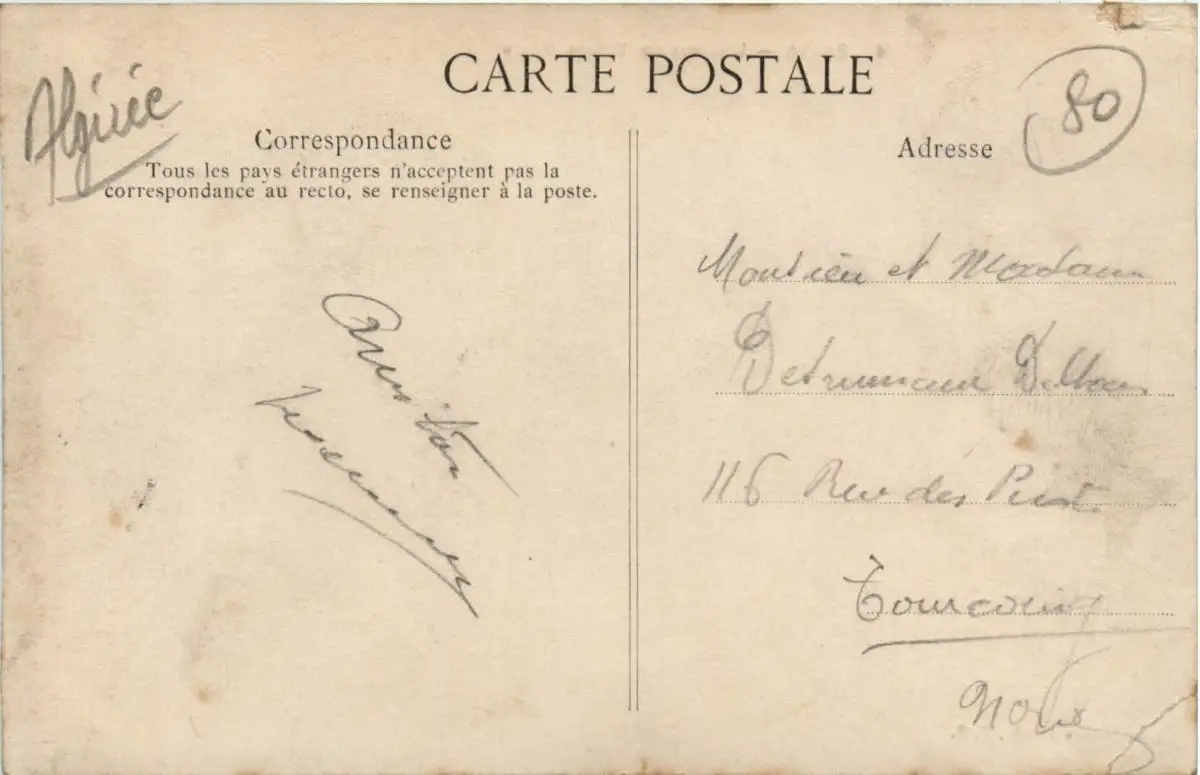 CARTE POSTALE
Algérie
80
Correspondance
Tous les pays étrangers n'acceptent pas la
correspondance au recto, se renseigner à la poste.
Adresse
Monsieur et Madame
116 Rue des
Tourcoing
Nord